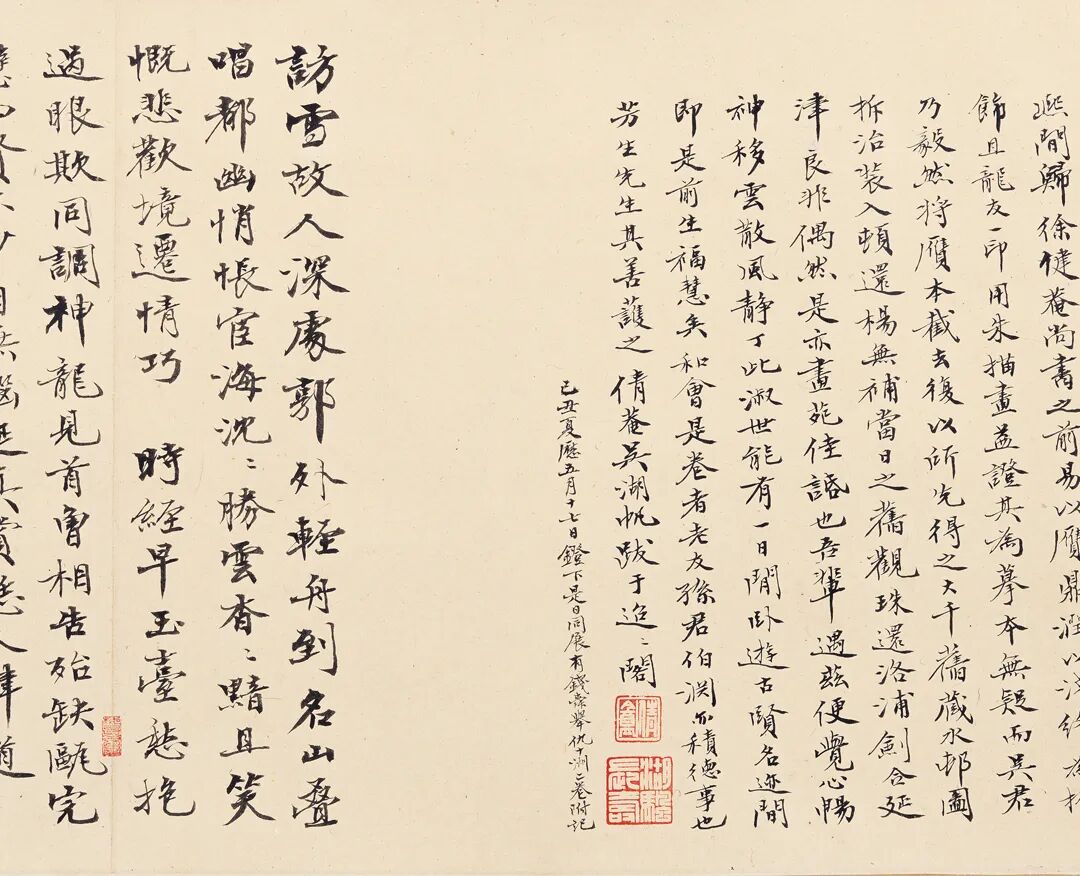 熙間歸徐健菴尚書之前易以贋鼎潤以淺絳為
飾且龍友一印用朱描畫益證其為摹本無疑而吳君
乃毅然將贋本截去復以所先得之大千舊藏水邨圖
拆治裝入頓還楊無補當日之舊觀珠還洛浦劍合延
津良非偶然是亦畫苑佳話也吾輩遇茲便覺心暢
神移雲散風靜丁此淑世能有一日閒臥遊古賢名迹間
即是前生福慧矣和會是卷者老友孫君伯淵亦積德事也
芳生先生其善護之倩菴吳湖帆跋于迢〻閣
己丑夏曆五月十七日鐙下是日同展有錢舜舉仇十洲二卷附記
倩盦
湖颿長壽
訪雪故人深處郭外輕舟到名山疊
唱都幽悄悵宦海沈〻勝雲杳〻黯且笑
慨悲歡境遷情巧 時經早玉臺愁抱
過眼欺同調神龍見首魯相告殆缺甌完